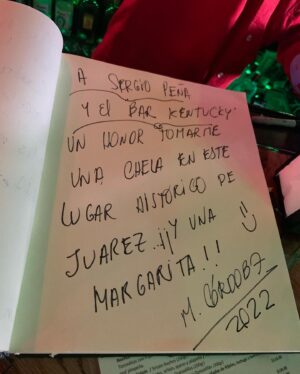 A SERGIO PEÑA
Y El BAR KENTUCKY.
UN HONOR TOMARME
UNA CHELA EN ESTE
LUGAR HISTÓRICO DE
JUAREZ...¡¡Y UNA
MARGARITA!!
M. CÓRDOBA
2022